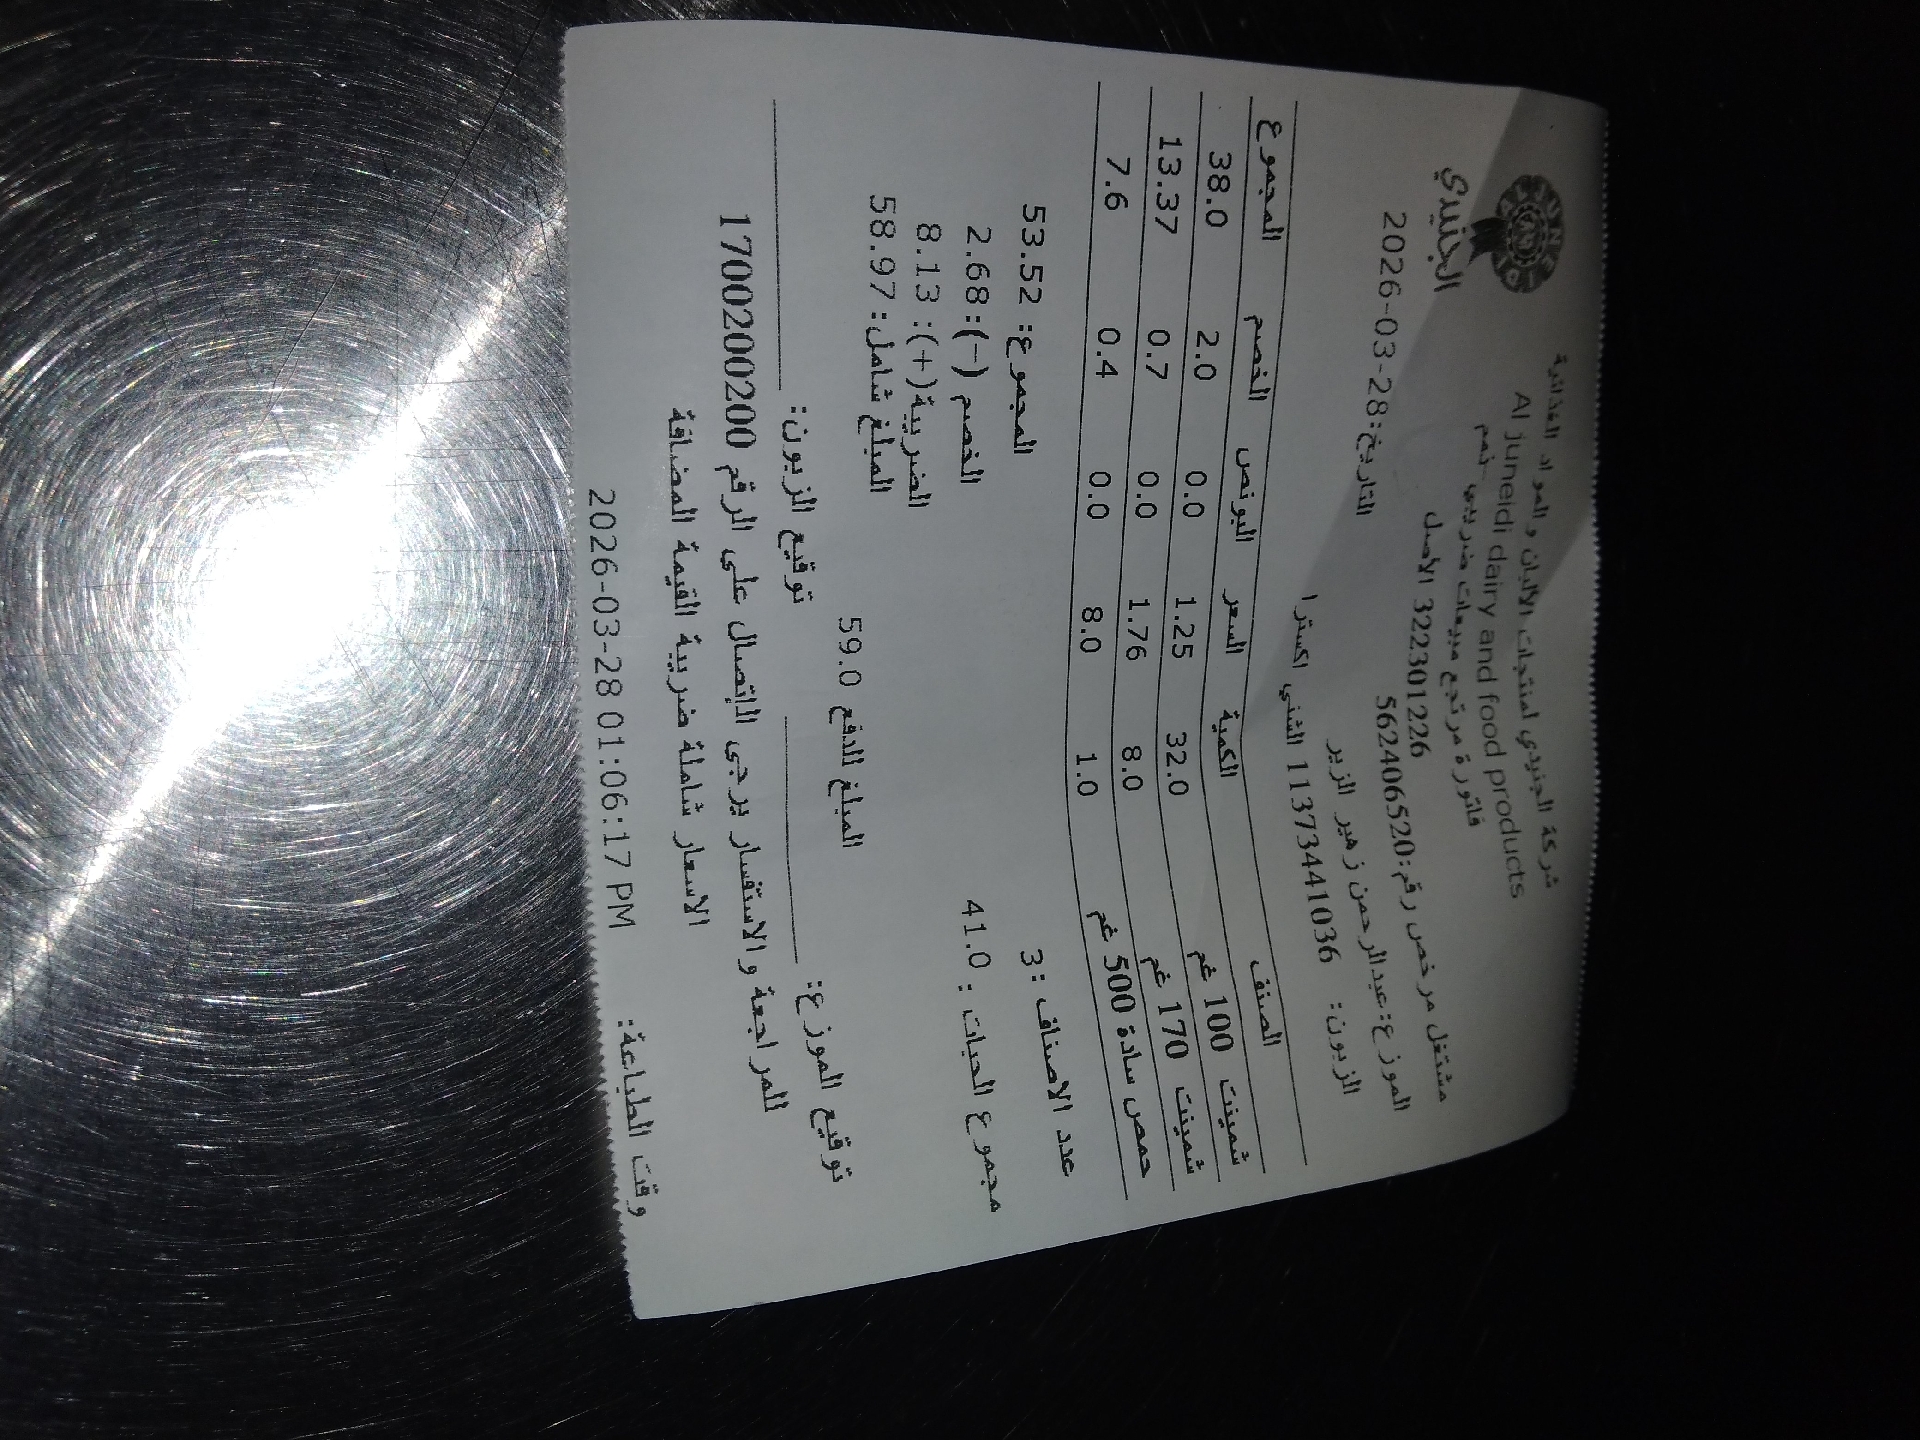 شركة الجنيدي لمنتجات الألبان والمواد الغذائية
Al juneidi dairy and food products
الجنيدي
فاتورة مرتجع مبيعات ضريبي-نهم
322301226 الأصل
مشتغل مرخص رقم:562406520
التاريخ:2026-03-28
الموزع:عبدالرحمن زهير الزير
الزبون: 11373441036 الشني اكسترا
الصنف الكمية السعر البونص الخصم المجموع
شمينت 100 غم 32.0 1.25 0.0 2.0 38.0
شمينت 170 غم 8.0 1.76 0.0 0.7 13.37
حمص سادة 500 غم 1.0 8.0 0.0 0.4 7.6
عدد الاصناف :3 المجموع: 53.52
مجموع الحبات : 41.0 الخصم (-):2.68
الضريبة(+): 8.13
المبلغ شامل: 58.97
المبلغ للدفع 59.0
توقيع الموزع: توقيع الزبون:
للمراجعة والاستفسار يرجى الاتصال على الرقم 1700200200
الاسعار شاملة ضريبة القيمة المضافة
وقت الطباعة: 2026-03-28 01:06:17 PM